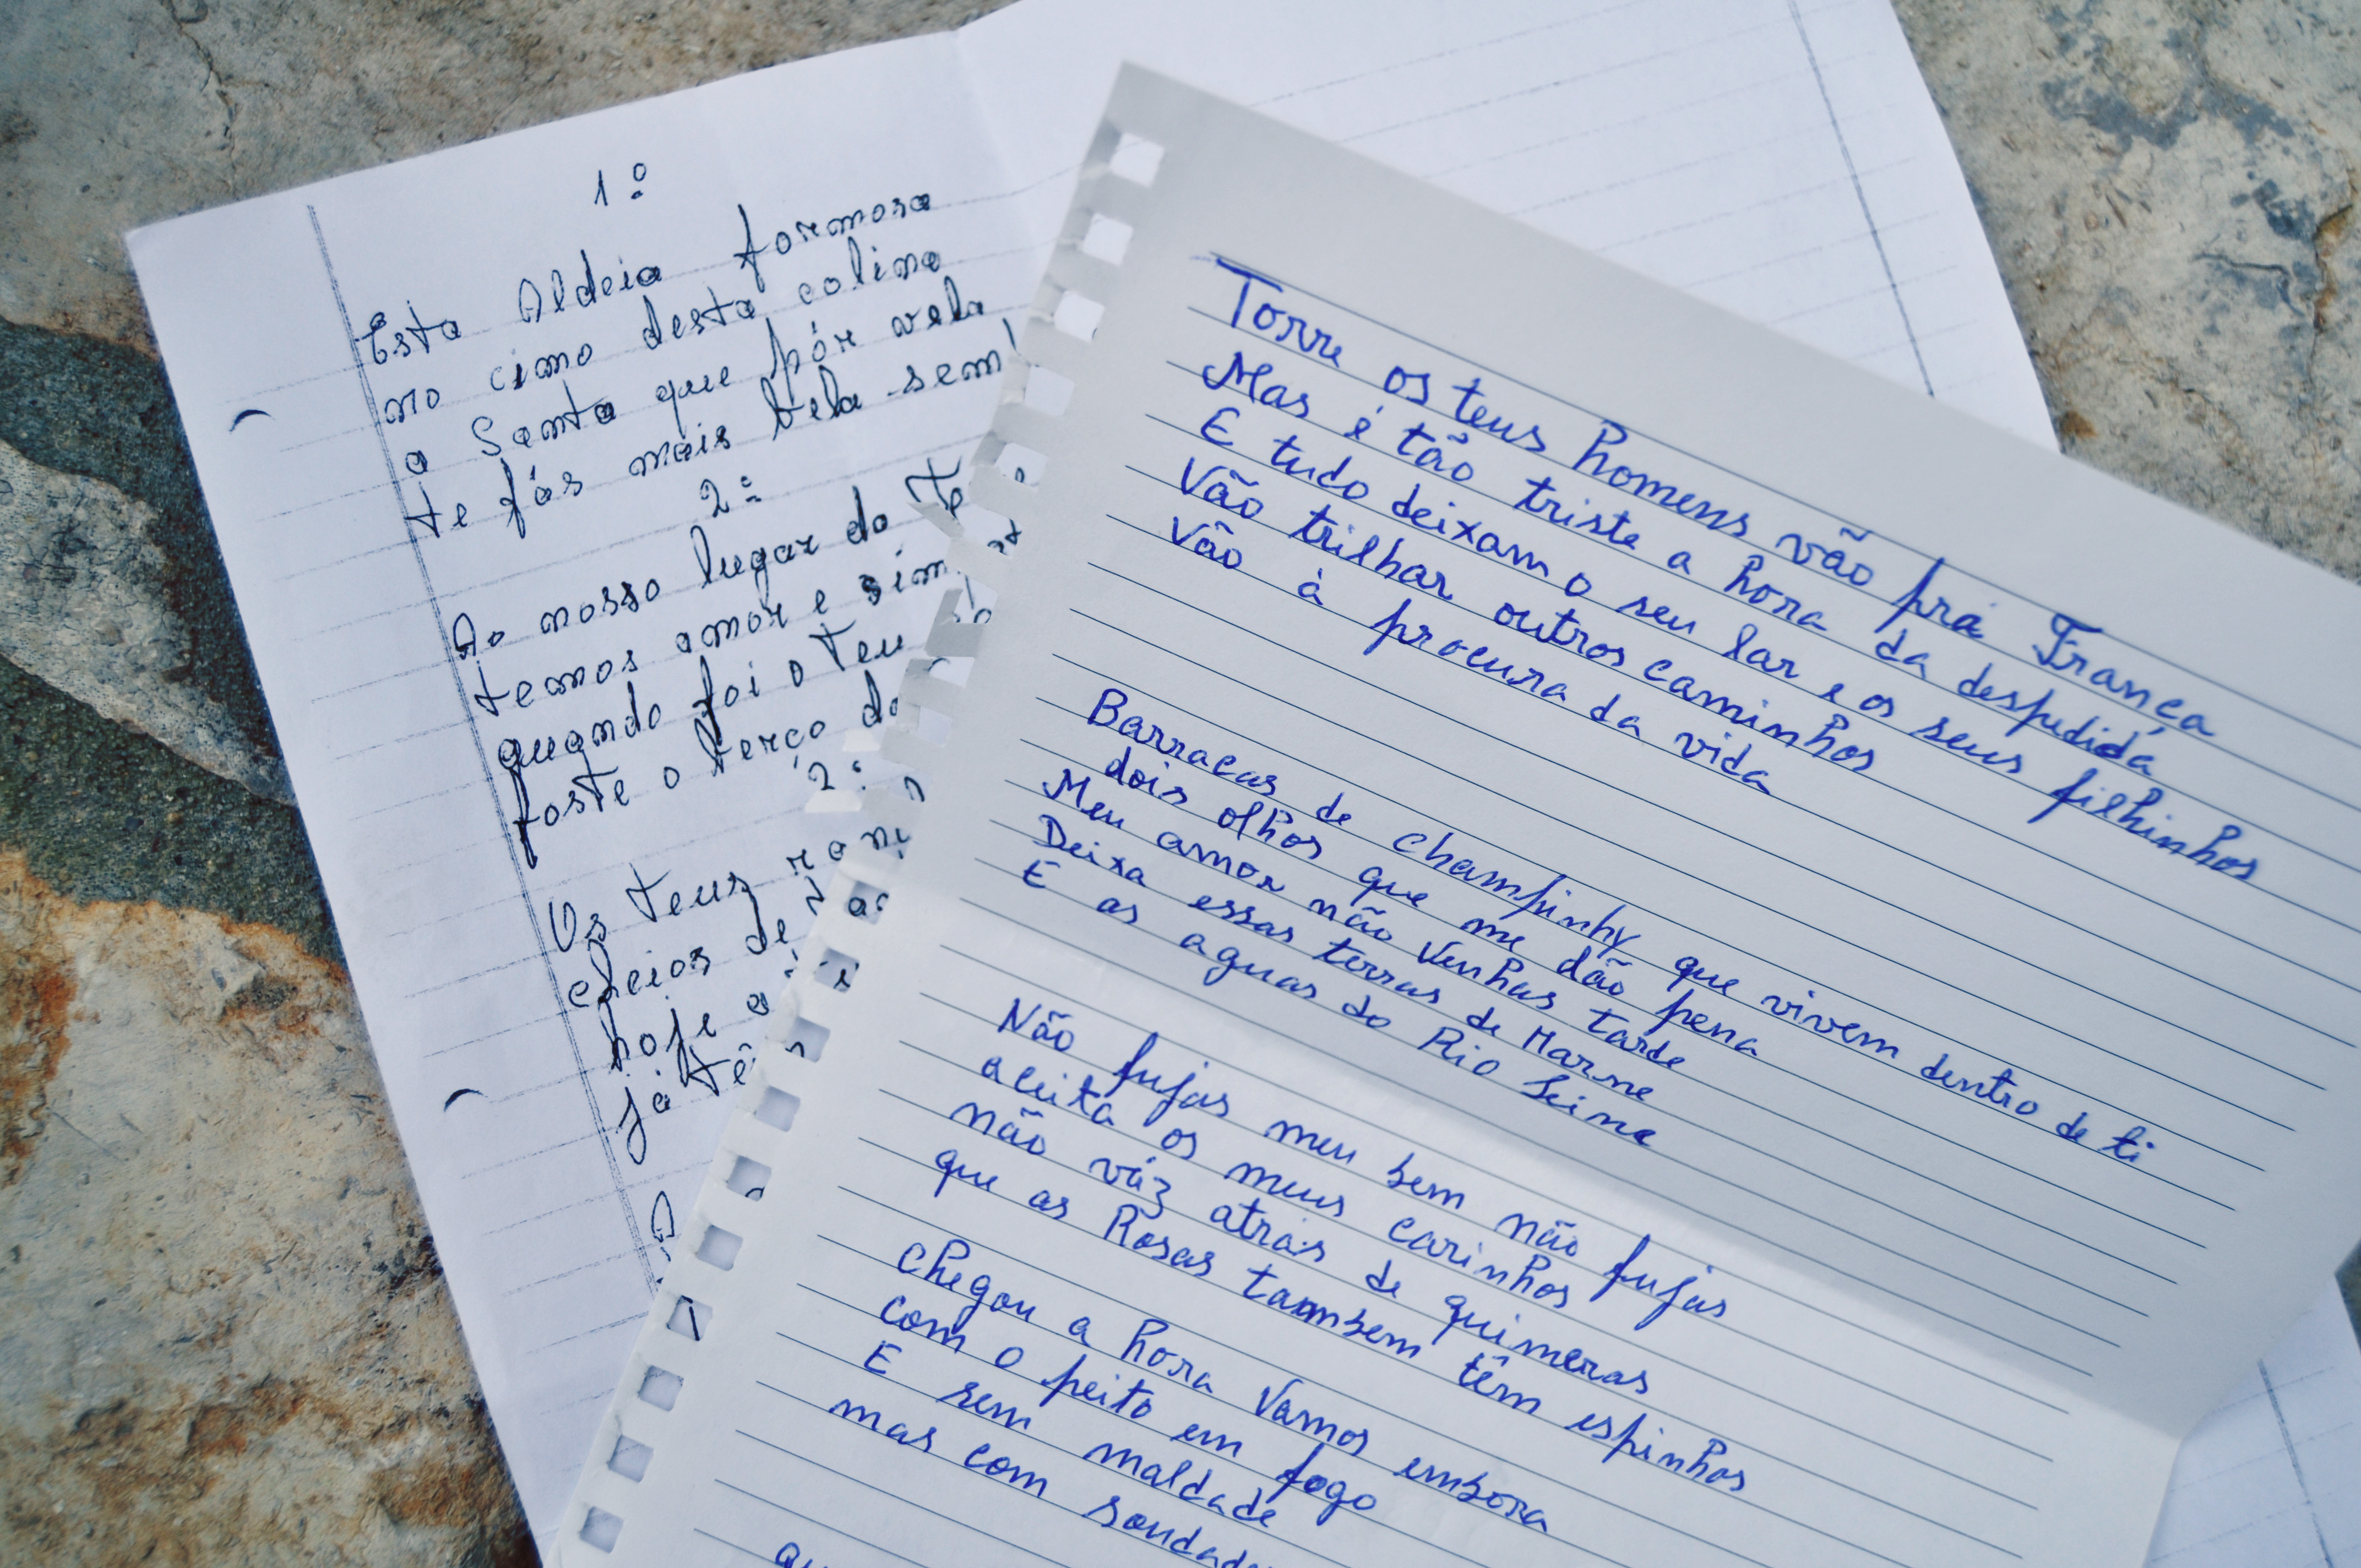 1º
Esta Aldeia formosa
no cimo desta colina
a Santa que pór vela
te fás mais bela sem
2º
Ao nosso lugar do
temos amor e
quando foi o teu
foste o terço do
2º
Os teus
cheios de
hoje a
já tê
A
Torre os teus homens vão prá França
Mas é tão triste a hora da despedida
E tudo deixam o seu lar e os seus filhinhos
Vão trilhar outros caminhos
Vão à procura da vida
Barracas de Champinhy que vivem dentro de ti
dois olhos que me dão pena
Meu amor não Venhas tarde
Deixa essas terras de Marne
E as aguas do Rio Seine
Não fujas meu bem não fujas
aceita os meus carinhos
não váz atrás de quimeras
que as Rosas tambem têm espinhos
Chegou a hora Vamos embora
com o peito em fogo
E sem maldade
mas com